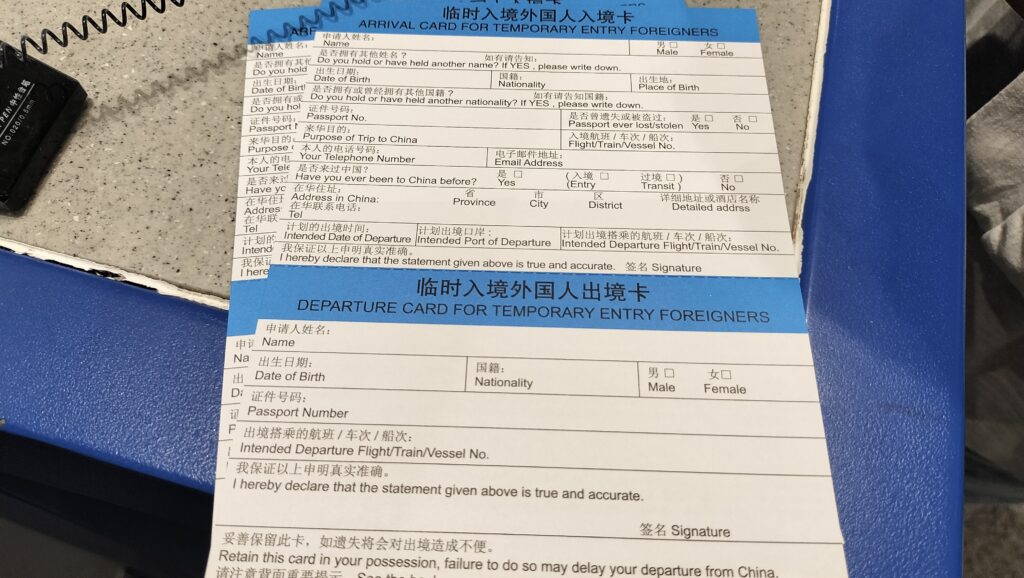 临时入境外国人入境卡
ARRIVAL CARD FOR TEMPORARY ENTRY FOREIGNERS
申请人姓名:
Name
男 □ 女 □
Male Female
是否拥有其他姓名? 如有请告知:
Do you hold or have held another name? If YES , please write down.
出生日期: 国籍: 出生地:
Date of Birth Nationality Place of Birth
是否拥有或曾经拥有其他国籍? 如有请告知国籍:
Do you hold or have held another nationality? If YES , please write down.
证件号码: 是否曾遗失或被盗过: 是 □ 否 □
Passport No. Passport ever lost/stolen Yes No
来华目的: 入境航班 / 车次 / 船次:
Purpose of Trip to China Flight/Train/Vessel No.
本人的电话号码: 电子邮件地址:
Your Telephone Number Email Address
是否来过中国? 是 □ (入境 □ 过境 □ ) 否 □
Have you ever been to China before? Yes (Entry Transit ) No
在华住址: 省 市 区 详细地址或酒店名称
Address in China: Province City District Detailed addrss
在华联系电话:
Tel
计划的出境时间: 计划出境口岸: 计划出境搭乘的航班 / 车次 / 船次:
Intended Date of Departure Intended Port of Departure Intended Departure Flight/Train/Vessel No.
我保证以上申明真实准确。
I hereby declare that the statement given above is true and accurate. 签名 Signature
临时入境外国人出境卡
DEPARTURE CARD FOR TEMPORARY ENTRY FOREIGNERS
申请人姓名:
Name
出生日期: 国籍: 男 □ 女□
Date of Birth Nationality Male Female
证件号码:
Passport Number
出境搭乘的航班 / 车次 / 船次:
Intended Departure Flight/Train/Vessel No.
我保证以上申明真实准确。
I hereby declare that the statement given above is true and accurate.
签名 Signature
妥善保留此卡，如遗失将会对出境造成不便。
Retain this card in your possession, failure to do so may delay your departure from China.
请注意背面重要提示。 See the back